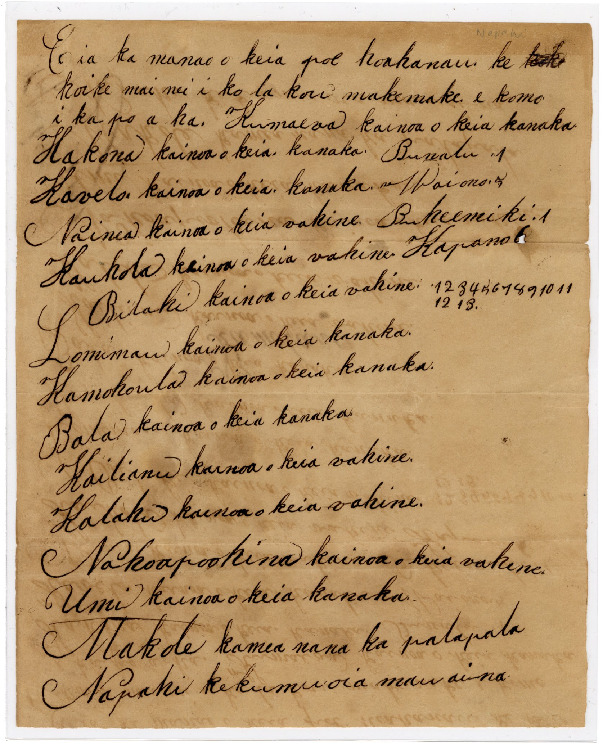 Eia ka manao o keia poe hoahanau. ke
hoike mai nei i ko la kou makemake. e komo
i ka po a ha. Kumaeva kainoa o keia kanaka
Hakona kainoa o keia. kanaka. 1
Kavelo. kainoa o keia. kanaka.
Nainea kainoa o keia vahine. 1
Kauhola kainoa o keia vahine. Kapano 6
Bilahi kainoa o keia vahine. 1 2 3 4 5 6 7 8 9 10 11
12 13.
Lomimau kainoa o keia kanaka.
Kamohoula kainoa o keia kanaka.
Bala kainoa o keia kanaka
Kailianu kainoa o keia vahine.
Kalaku kainoa o keia vahine.
Nakoapoohina kainoa o keia vahine.
Umi kainoa o keia kanaka.
Makole kamea nana ka palapala
Napahi kekumu oia mau aina